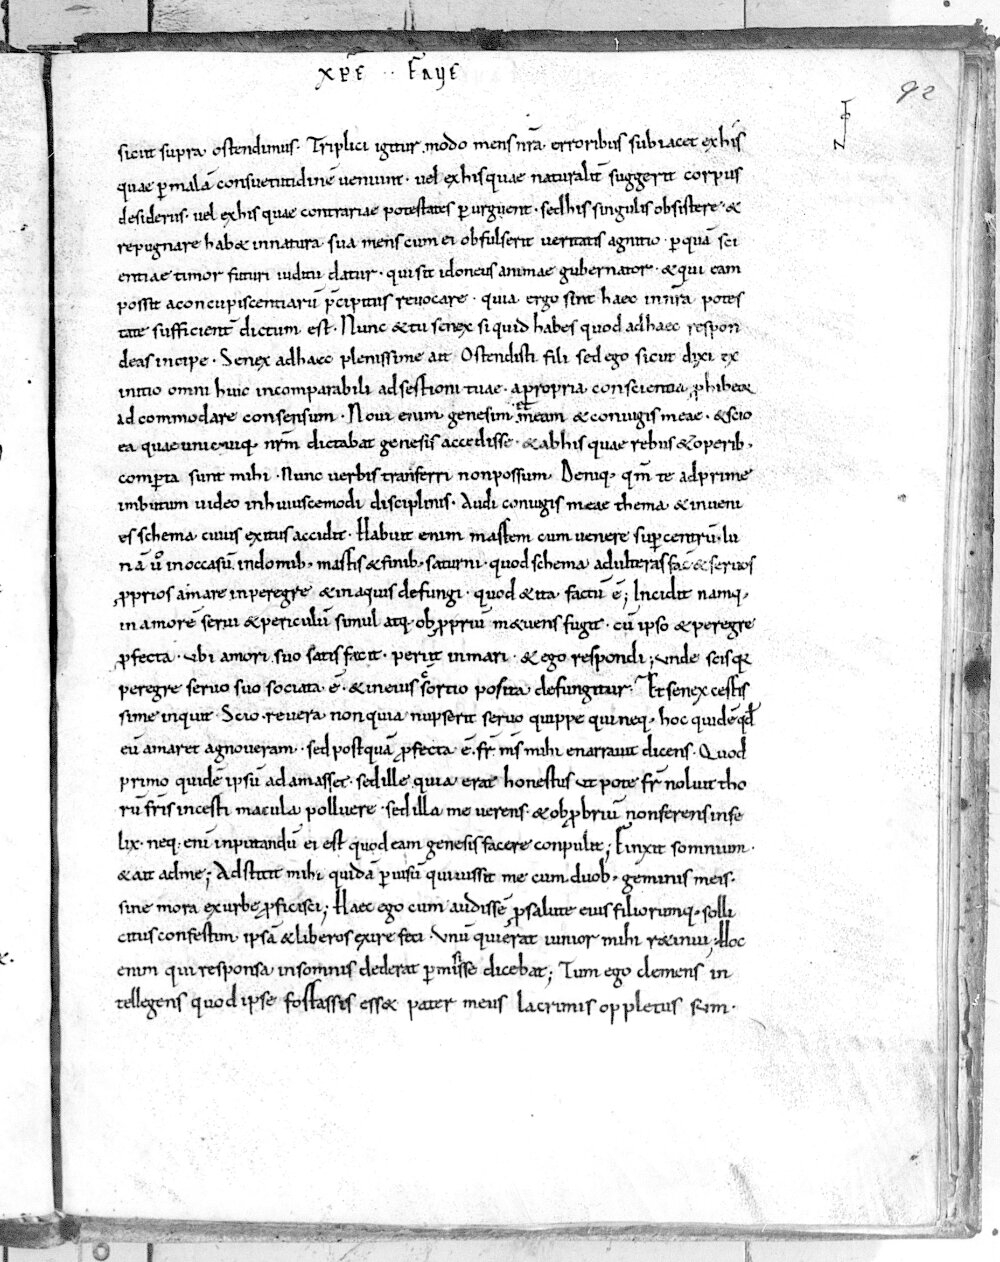 xp̄e ·· faue
92
sicut supra ostendimus. Triplici igitur modo mens nr̄a erroribus subiacet ex his
quae p̱ malā consuetudinē ueniunt. uel ex his quae naturalit̄ suggerit corpus
desiderus. uel ex his quae contrariae potestates p̱ urguent. sed his singulis obsistere &
repugnare hab& in natura sua mens cum ei obfulserit ueritatis agnitio p̱ quā sci
entiae timor futuri iuditii datur. qui sit idoneus animae gubernator. & qui eam
possit a concupiscentiarū p̄cipitiis reuocare. quia ergo sint haec in nr̄a potes
tate sufficient̄ dictum est. Nunc & tu senex si quid habes quod ad haec respon
deas incipe. Senex ad haec plenissime ait Ostendisti fili sed ego sicut dixi ex
initio omni huic incomparabili adsestioni tuae. a propria conscientia ꝓhibeor
adcommodare consensum. Noui enim genesim meam & coniugis meae. & scio
ea quae unicuiq; nr̄m dictabat genesis accedisse. & ab his quae rebus & operib;
comp̱ta sunt mihi. Nunc uerbis transferri non possum. Deniq; qm̄ te adprime
imbutum uideo in huiuscemodi disciplinis. Audi coniugis meae thema & inueni
es schema cuius exitus accidit. Habuit enim mastem cum uenere sup̱ centrū. lu
nā ů in occasū. in domib; mastis & finib; saturni. quod schema adulteras fac̄ & seruos
ꝓprios amare in peregre & in aquis defungi. quod & ita factū ē; Incidit namq;
in amorē serui & periculū simul atq; obꝓpriū m&uens fugit. cū ipso & peregre
ꝓfecta. ubi amori suo satisfacit. periit in mari. & ego respondi; unde scis q̨
peregre seruo suo sociata ē. & in eius sortio posita defungitur. Et senex cestis
sime inquit Scio reuera non quia nupserit seruo quippe qui neq; hoc quidē qd̄
eū amaret agnoueram. sed postquā ꝓfecta ē. fr̄ m̄s mihi enarrauit dicens. Quod
primo quidē ipsū adamasset. sed ille quia erat honestus ut pote fr̄ noluit tho
rū fr̄is incesti macula polluere. sed illa me uerens. & obꝓbriū non ferens infe
lix. neq; enī inputandū ei est quod eam genesis facere conpulit; Finxit somnium.
& ait ad me; Adstitit mihi quidā p̱ uisū qui iussit me cum duob; geminis meis.
sine mora ex urbe ꝓficisci; Haec ego cum audissē ꝓ salute eius filiorumq; solli
citus confestim ipsā & liberos exire feci. Unū qui erat iunior mihi r&inui; Hoc
enim qui responsa in somnis dederat p̱misisse dicebat; Tum ego clemens in
tellegens quod ipse fostassis ess& pater meus lacrimis oppletus sum.